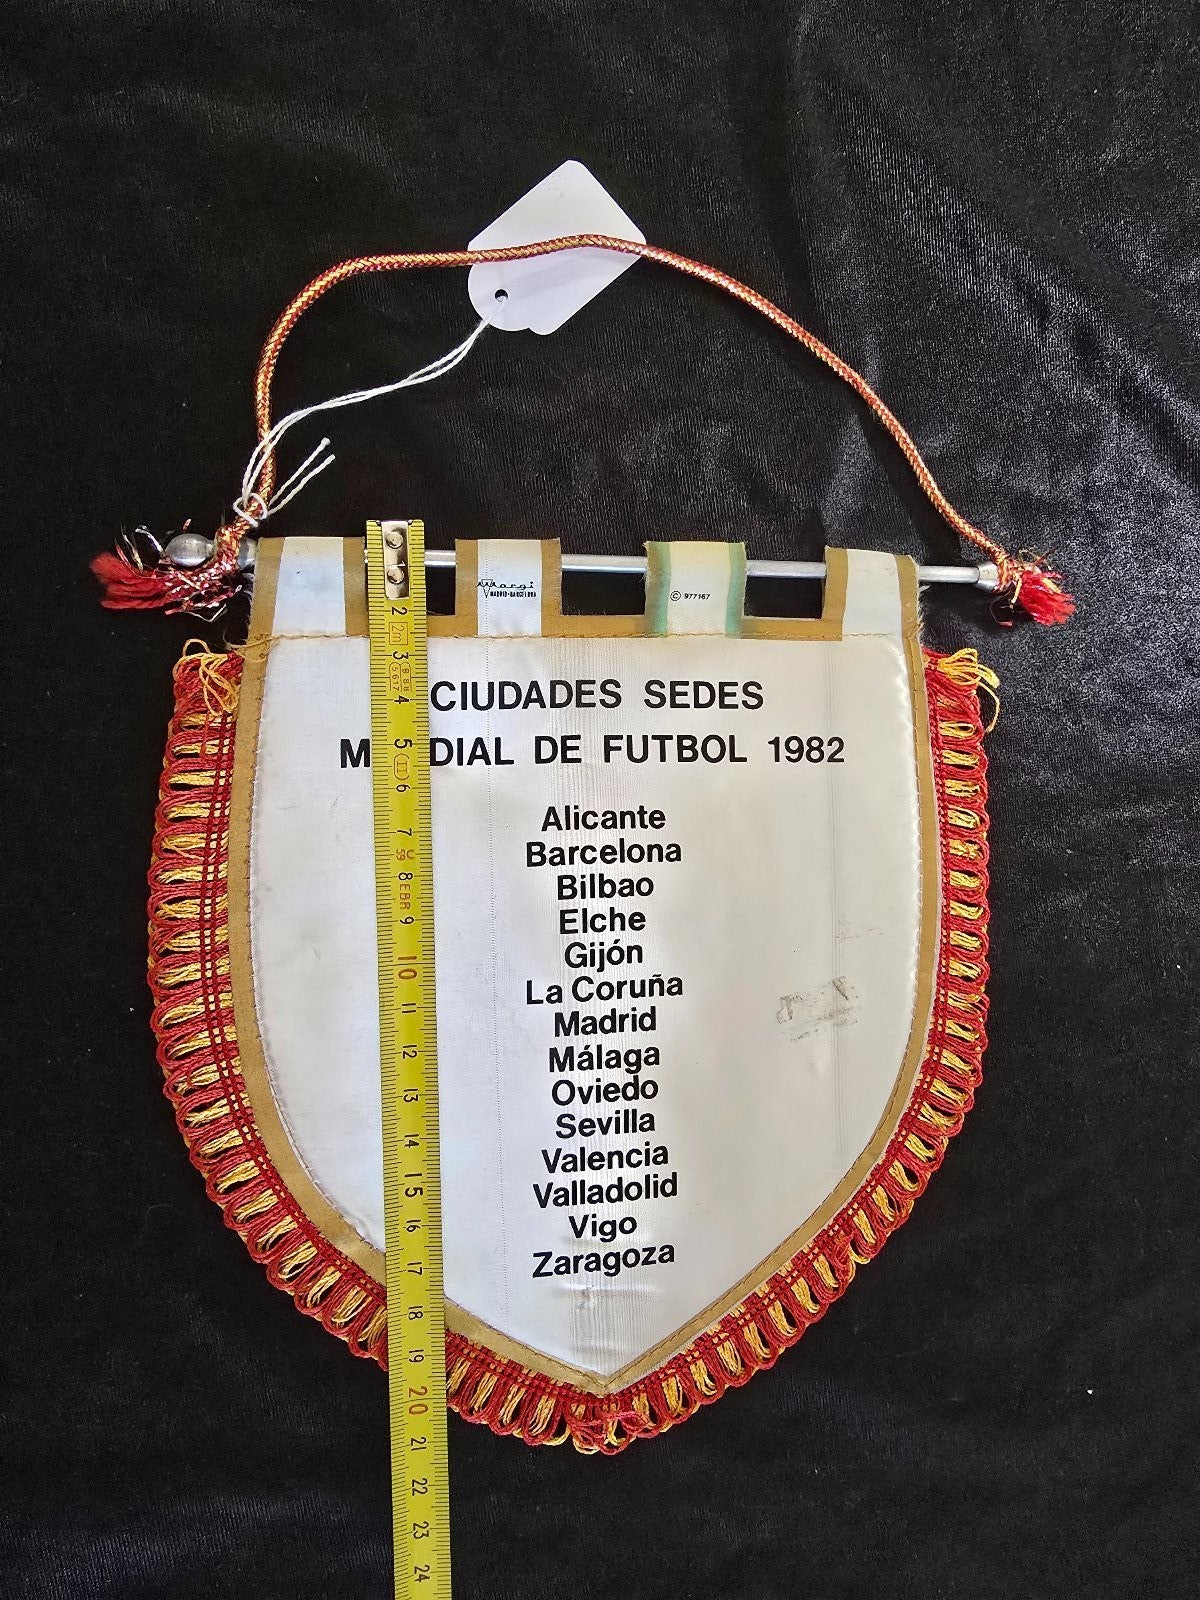 Margi
MADRID-BARCELONA
© 977167
CIUDADES SEDES
M DIAL DE FUTBOL 1982
Alicante
Barcelona
Bilbao
Elche
Gijón
La Coruña
Madrid
Málaga
Oviedo
Sevilla
Valencia
Valladolid
Vigo
Zaragoza
2
2m
3
4
5
6
7
8
9
10
11
12
13
14
15
16
17
18
19
20
21
22
23
24